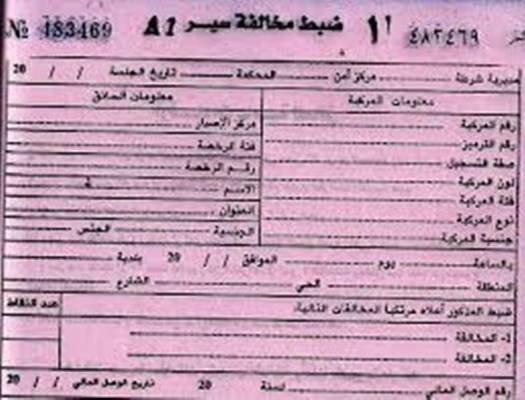 № 483469 A1 ضبط مخالفة سير ٤٨٣٤٦٩
مديرية شرطة مركز أمن المحكمة تاريخ الجلسة / / 20
معلومات المركبة
رقم المركبة
رقم الترميز
صفة التسجيل
لون المركبة
فئة المركبة
نوع المركبة
جنسية المركبة
معلومات السائق
مركز الإصدار
فئة الرخصة
رقم الرخصة
الاسم
العنوان
الجنسية الجنس
بالساعة يوم الموافق / / 20 بلدية
المنطقة الحي الشارع
ضبط المذكور أعلاه مرتكبا المخالفات التالية: عدد النقاط
1- المخالفة
2- المخالفة
رقم الوصل المالي لسنة 20 تاريخ الوصل المالي / / 20